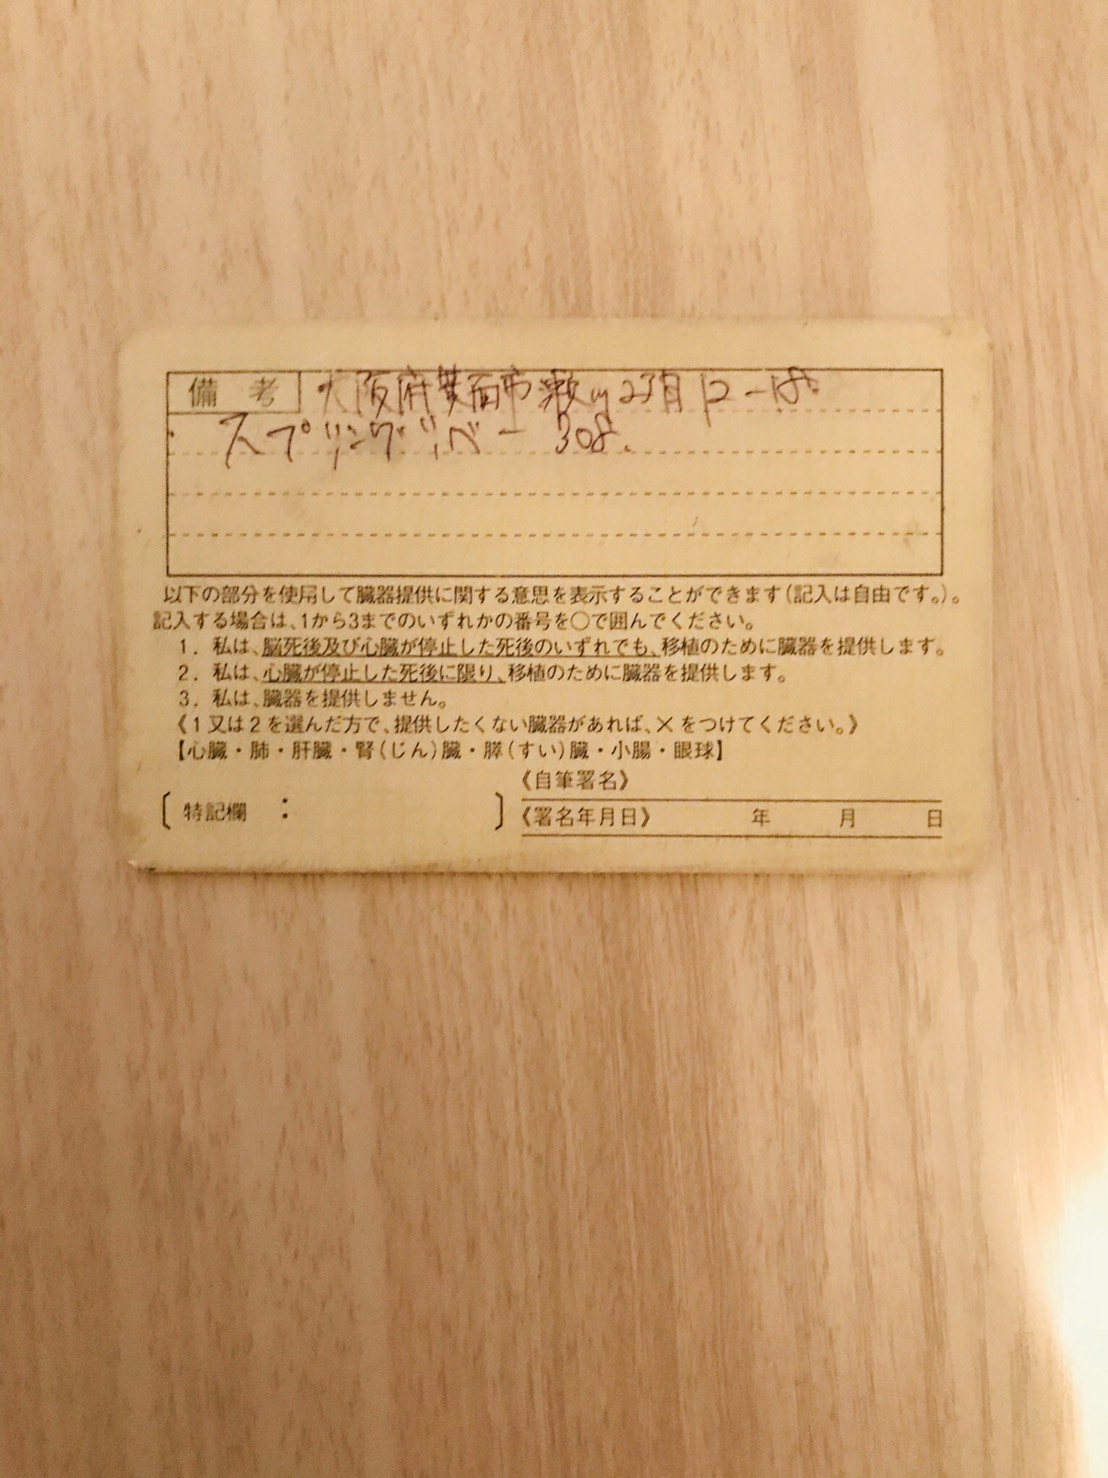 備考 大阪府箕面市瀬川2丁目12-18
スプリングリバー 308
以下の部分を使用して臓器提供に関する意思を表示することができます(記入は自由です。)。
記入する場合は、1から3までのいずれかの番号を○で囲んでください。
1. 私は、脳死後及び心臓が停止した死後のいずれでも、移植のために臓器を提供します。
2. 私は、心臓が停止した死後に限り、移植のために臓器を提供します。
3. 私は、臓器を提供しません。
《1又は2を選んだ方で、提供したくない臓器があれば、×をつけてください。》
【心臓・肺・肝臓・腎(じん)臓・膵(すい)臓・小腸・眼球】
《自筆署名》
〔特記欄 : 〕
《署名年月日》 年 月 日